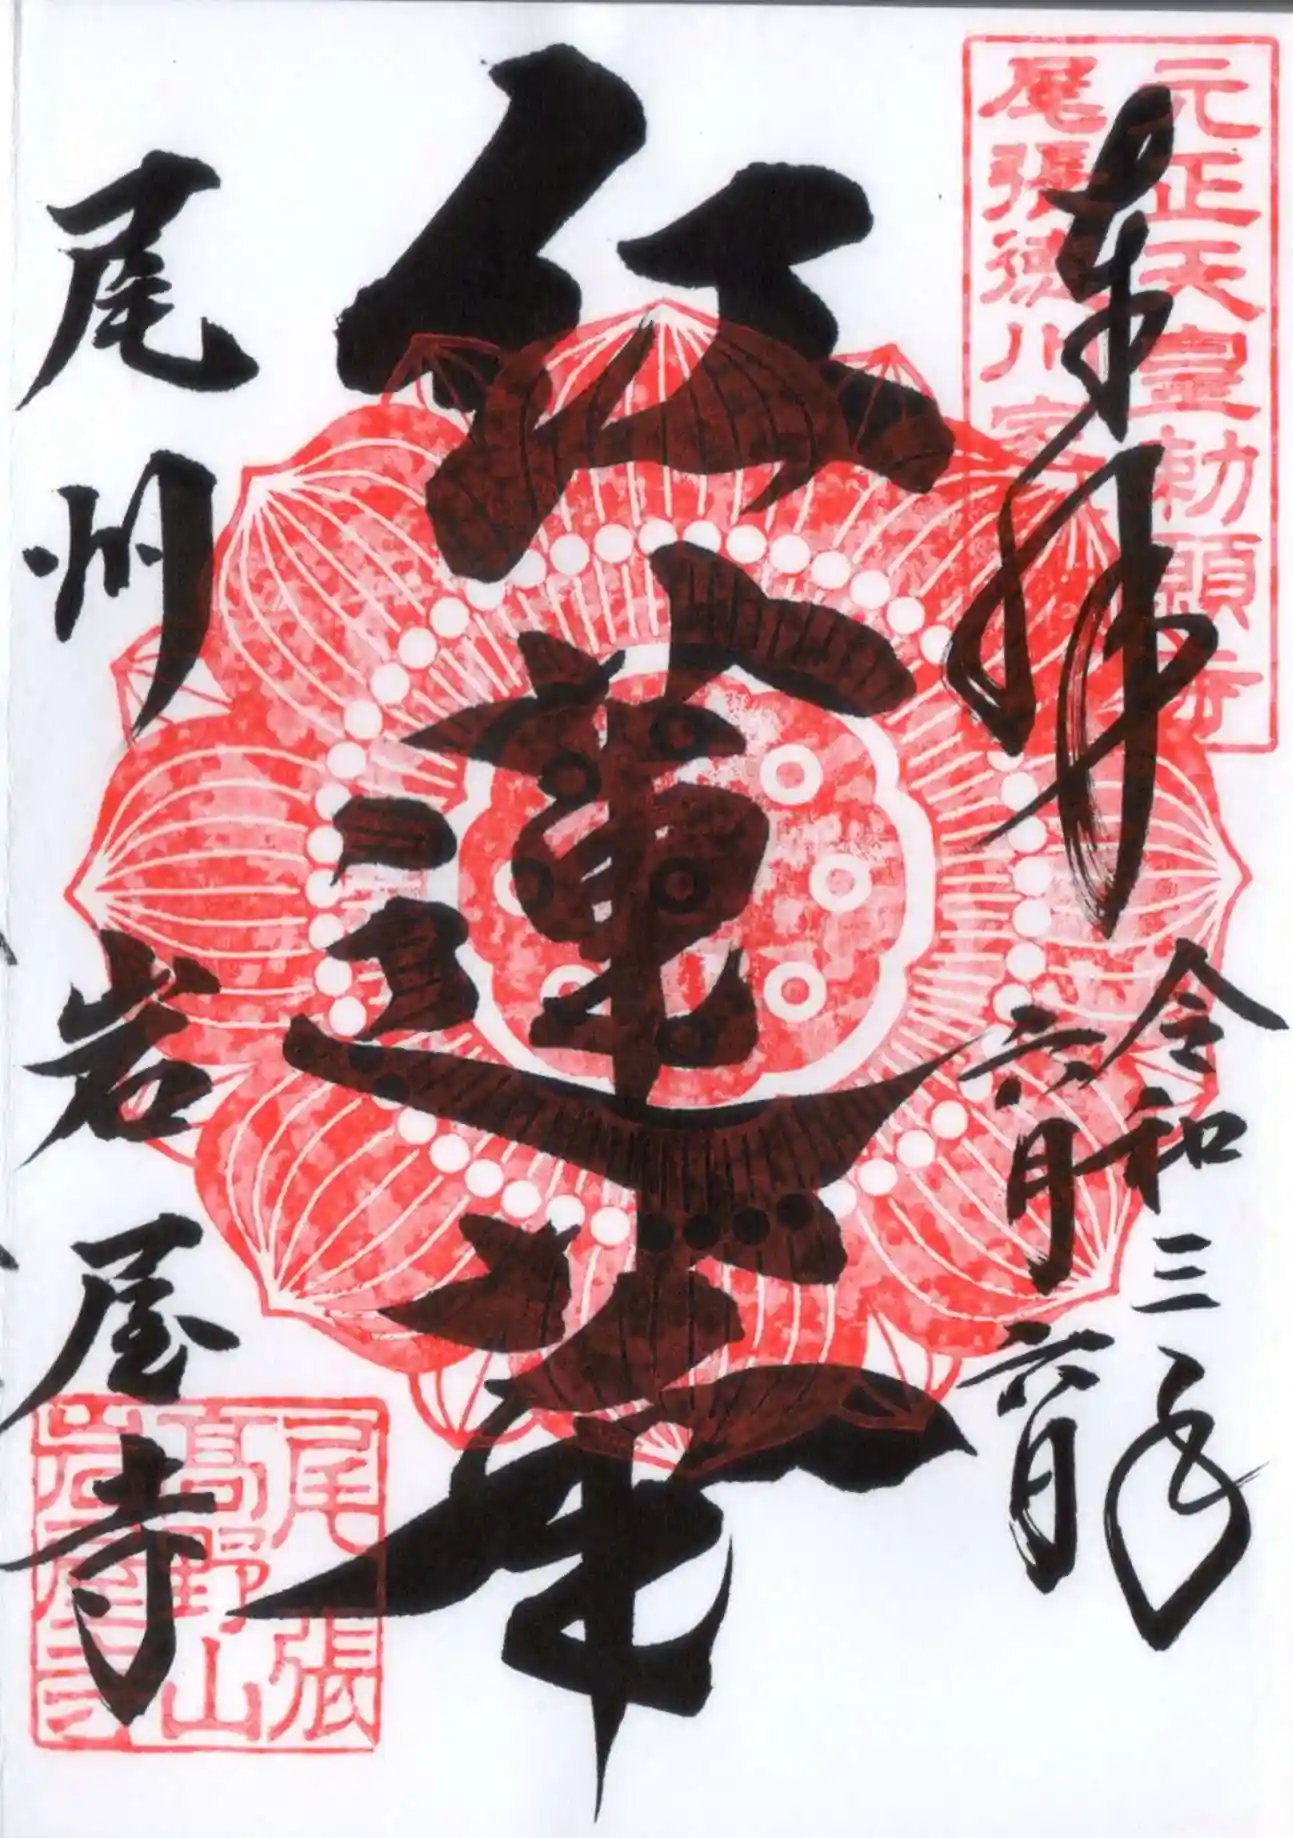 元正天皇勅願寺
尾張徳川家
奉拝
令和三年
六月六日
紅蓮華
尾州
岩屋寺
尾張
高野山
岩屋寺